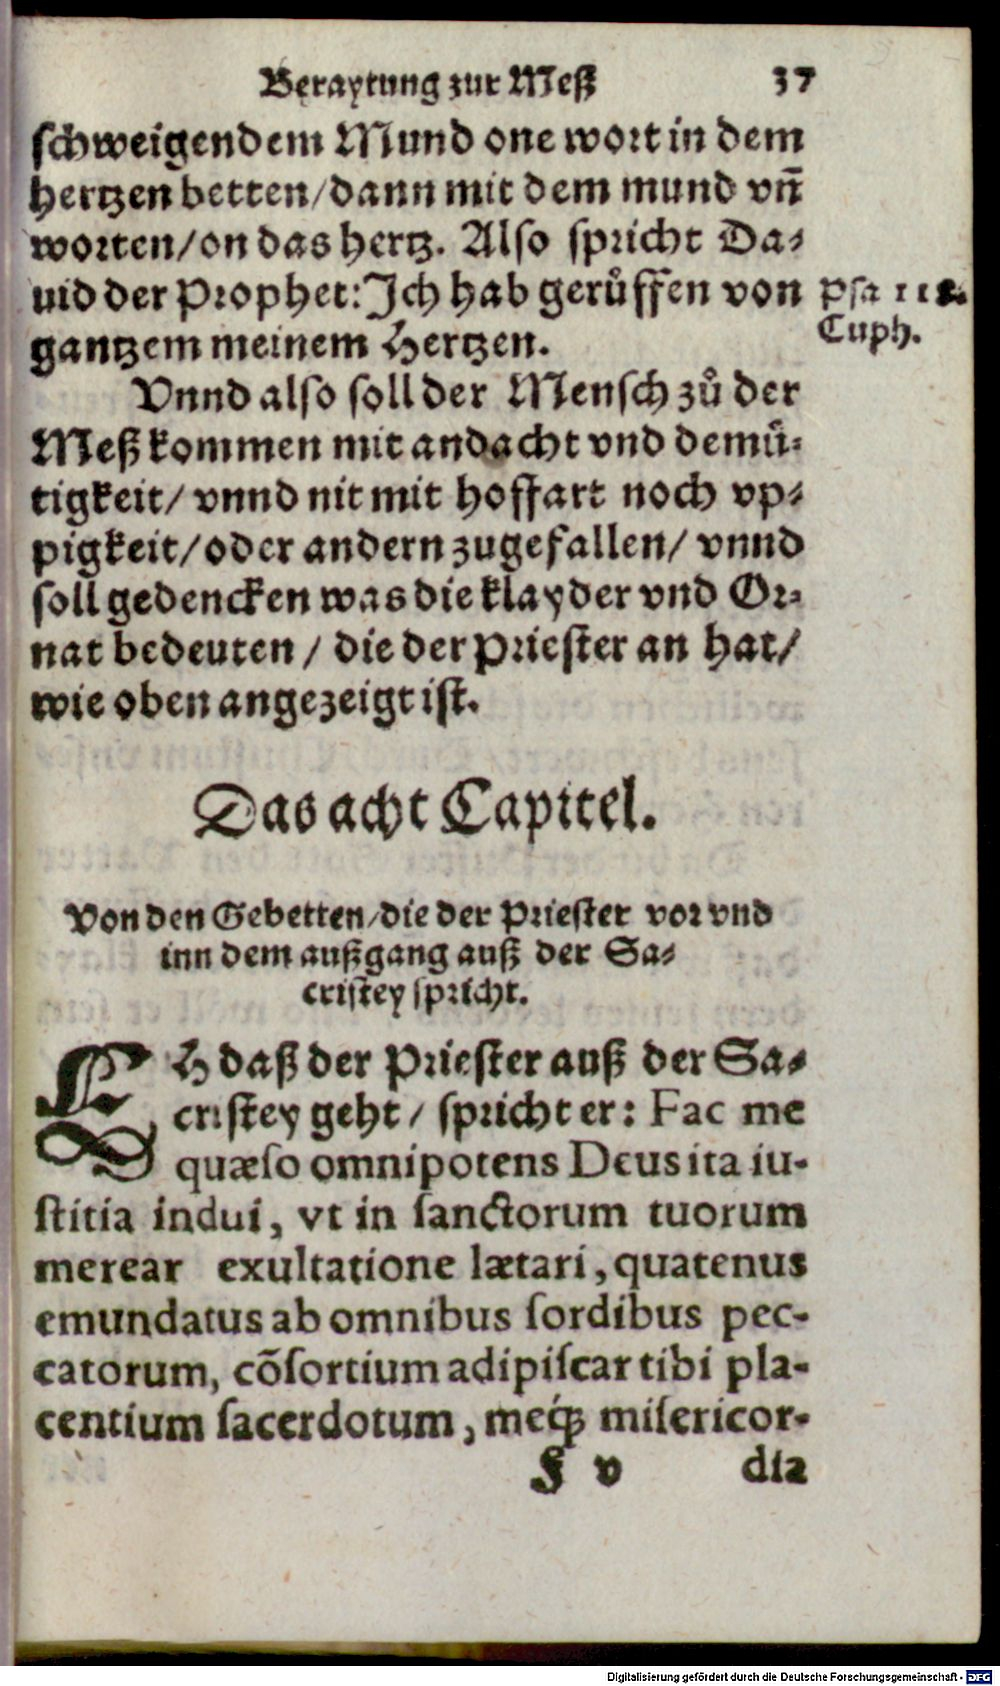 Beraytung zur Meß 37
schweigendem Mund one wort in dem
hertzen betten/dann mit dem mund vn̄
worten/on das hertz. Also spricht Da-
uid der Prophet: Ich hab gerůffen von
gantzem meinem Hertzen.
Psa 118.
Cuph.
Vnnd also soll der Mensch zů der
Meß kommen mit andacht vnd demü-
tigkeit/ vnnd nit mit hoffart noch vp-
pigkeit/oder andern zugefallen/ vnnd
soll gedencken was die klayder vnd Or-
nat bedeuten / die der Priester an hat/
wie oben angezeigt ist.
Das acht Capitel.
Von den Gebetten/die der Priester vor vnd
inn dem außgang auß der Sa-
cristey spricht.
EH daß der Priester auß der Sa-
cristey geht / spricht er: Fac me
quæso omnipotens Deus ita iu-
stitia indui, vt in sanctorum tuorum
merear exultatione lætari, quatenus
emundatus ab omnibus sordibus pec-
catorum, cõsortium adipiscar tibi pla-
centium sacerdotum, meq́ꝫ misericor-
F v dia
Digitalisierung gefördert durch die Deutsche Forschungsgemeinschaft - DFG